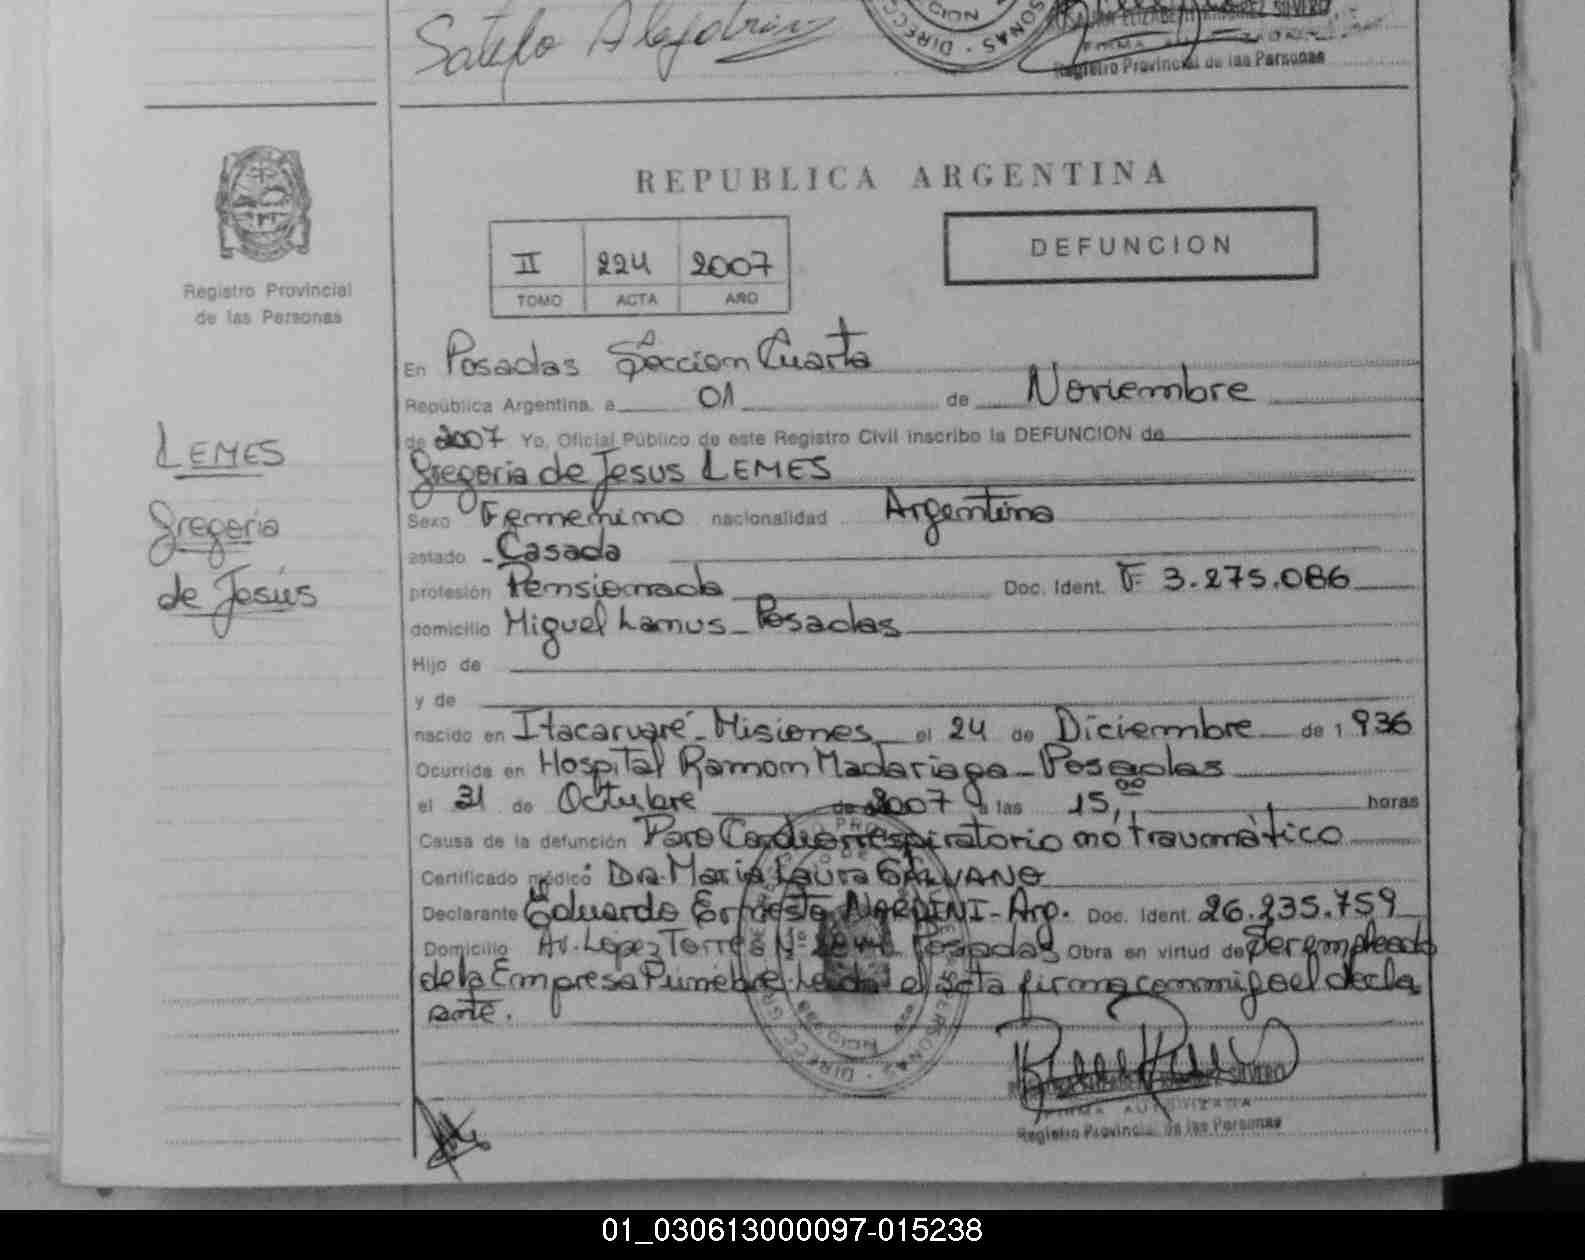 Sotelo Alejandrino
Registro Provincial de las Personas
REPUBLICA ARGENTINA
DEFUNCION
II 224 2007
TOMO ACTA AÑO
Registro Provincial
de las Personas
LEMES
Gregoria
de Jesús
En Posadas Seccion Cuarta
República Argentina, a 01 de Noviembre
de 2007 Yo, Oficial Público de este Registro Civil inscribo la DEFUNCION de
Gregoria de Jesus LEMES
Sexo Femenino nacionalidad Argentina
estado - Casada
profesión Pensionada Doc. Ident. F 3.275.086
domicilio Miguel Lanus - Posadas
Hijo de
y de
nacido en Itacaruaré - Misiones el 24 de Diciembre de 1 936
Ocurrida en Hospital Ramon Madariaga - Posadas
el 31 de Octubre de 2007 a las 15,00 horas
Causa de la defunción Paro Cardiorrespiratorio no traumático
Certificado médico Dra. Maria Laura GALVANO
Declarante Eduardo Ernesto NARDINI - Arg. Doc. Ident. 26.235.759
Domicilio Av. Lopez Torres Nº Posadas Obra en virtud de Ser empleado
de la Empresa Funebre. Leida el acta firma conmigo el decla
rante.
FIRMA AUTORIZADA
Registro Provincial de las Personas
01_030613000097-015238